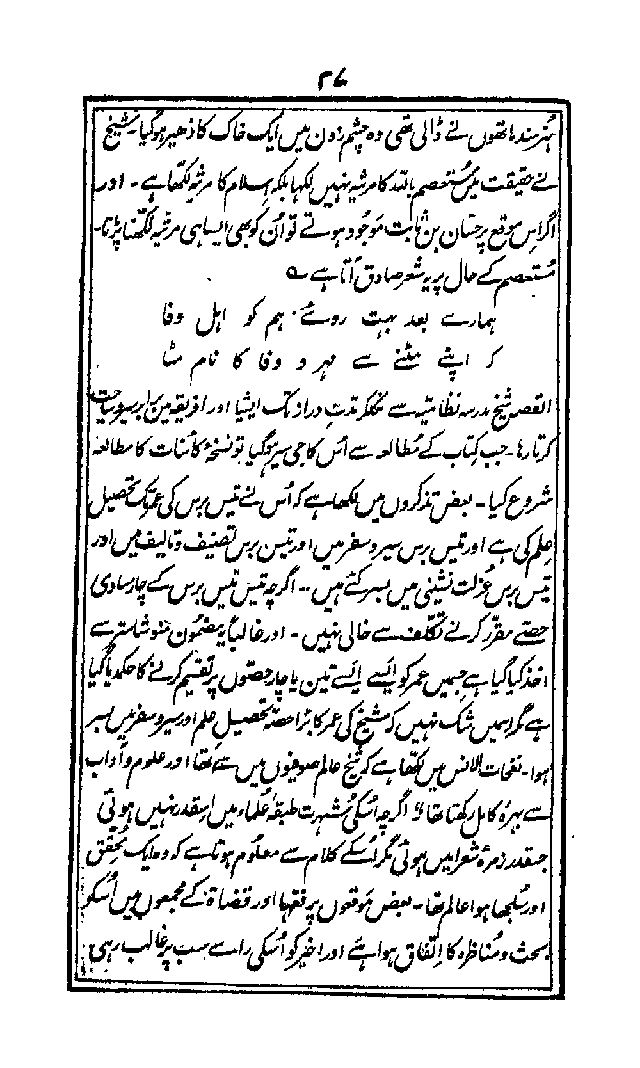 ۲۷
ہُنرمند ہاتھوں نے ڈالی تھی وہ چشمِ زدن میں ایک خاک کا ڈھیر ہوگیا۔ شیخ
نے حقیقت میں مُستعصم باللہ کا مرثیہ نہیں لکھا بلکہ اسلام کا مرثیہ لکھا ہے۔ اور
اگر اس موقع پر حسّان بن ثابت موجود ہوتے تو اُن کو بھی ایسا ہی مرثیہ لکھنا پڑتا۔
مُستعصم کے حال پر یہ شعر صادق آتا ہے ؎
ہمارے بعد بہت روئے ہم کو اہل وفا
کہ اپنے مٹنے سے مہر و وفا کا نام مٹا
القصہ شیخ مدرسہ نظامیہ سے نکلکر مدتِ دراز تک ایشیا اور افریقہ میں برابر سیر و سیاحت
کرتا رہا۔ جب کتاب کے مُطالعہ سے اُس کا جی سیر ہوگیا تو نسخۂ کائنات کا مطالعہ
شروع کیا۔ بعض تذکروں میں لکھا ہے کہ اُس نے تیس برس کی عمر تک تحصیل
علم کی ہے اور تیس برس سیر و سفر میں اور تیس برس تصنیف و تالیف میں اور
تیس برس عُزلت نشینی میں بسر کئے ہیں۔ اگرچہ تیس تیس برس کے چار مساوی
حصّے مقرر کرنے تکلف سے خالی نہیں۔ اور غالباً یہ مضمون منوشاستر سے
اخذ کیا گیا ہے جسمیں عمر کو ایسے ایسے تین یا چار حصّوں پر تقسیم کرنے کا حکم دیا گیا
ہے مگر اسمیں شک نہیں کہ شیخ کی عمر کا بڑا حصّہ تحصیلِ علم اور سیر و سفر میں بسر
ہوا۔ نفحات الانس میں لکھا ہے کہ شیخ عالم صوفیوں میں سے تھا اور علوم و آداب
سے بہرۂ کامل رکھتا تھا اگرچہ اُسکی شُہرت طبقہ عُلماء میں اسقدر نہیں ہوئی
جسقدر زمرۂ شعرا میں ہوئی مگر اُسکے کلام سے معلوم ہوتا ہے کہ وہ ایک محقّق
اور سُلجھا ہوا عالم تھا۔ بعض موقعوں پر فقہا اور قضاۃ کے مجمعوں میں اُسکو
بحث و مُناظرہ کا اتفاق ہوا ہے اور اخیر کو اُسکی رائے سب پر غالب رہی